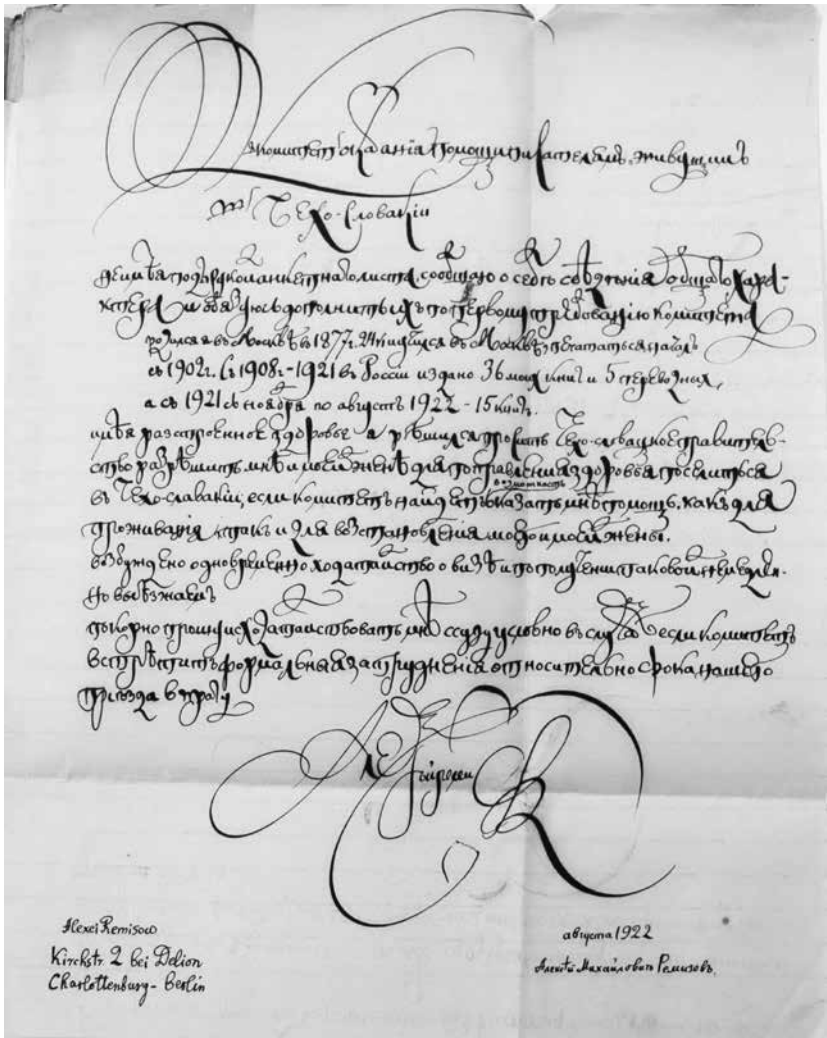 В комитетъ оказанія помощи писателямъ, живущимъ
въ Чехо-Словакіи
Не имѣя подъ рукой анкетнаго листа, сообщаю о себѣ свѣдѣнія общаго хара-
ктера и обязуюсь дополнить ихъ по первому требованію комитета
родился въ Москвѣ въ 1877 г. 24 VI учился въ Москвѣ печататься началъ
съ 1902 г. Съ 1908 г. - 1921 въ Россіи издано 36 моихъ книг и 5 переводныхъ,
а съ 1921 съ ноября по августъ 1922 - 15 книгъ.
имѣя разстроенное здоровье я рѣшился просить Чехо-словацкое правитель-
ство разрѣшить мнѣ и моей женѣ для поправленія здоровья поселиться
возможность
въ Чехо-славакіи, если комитетъ найдетъ оказать мнѣ помощь, какъ для
проживанія, такъ и для возстановленія моего и моей жены.
возбуждено одновременно ходатайство о визѣ и по полученіи таковой немедлен-
но выѣзжаемъ
покорно прошу исходатайствовать мнѣ ссуду условно въ случаѣ если комитетъ
встрѣтитъ формальныя затрудненія относительно срока нашего
пріѣзда в прагу
Алексѣй Ремизов
Alexei Remisow
Kirchstr. 2 bei Delion
Charlottenburg - Berlin
августа 1922
Алексѣй Михайловичъ Ремизовъ.